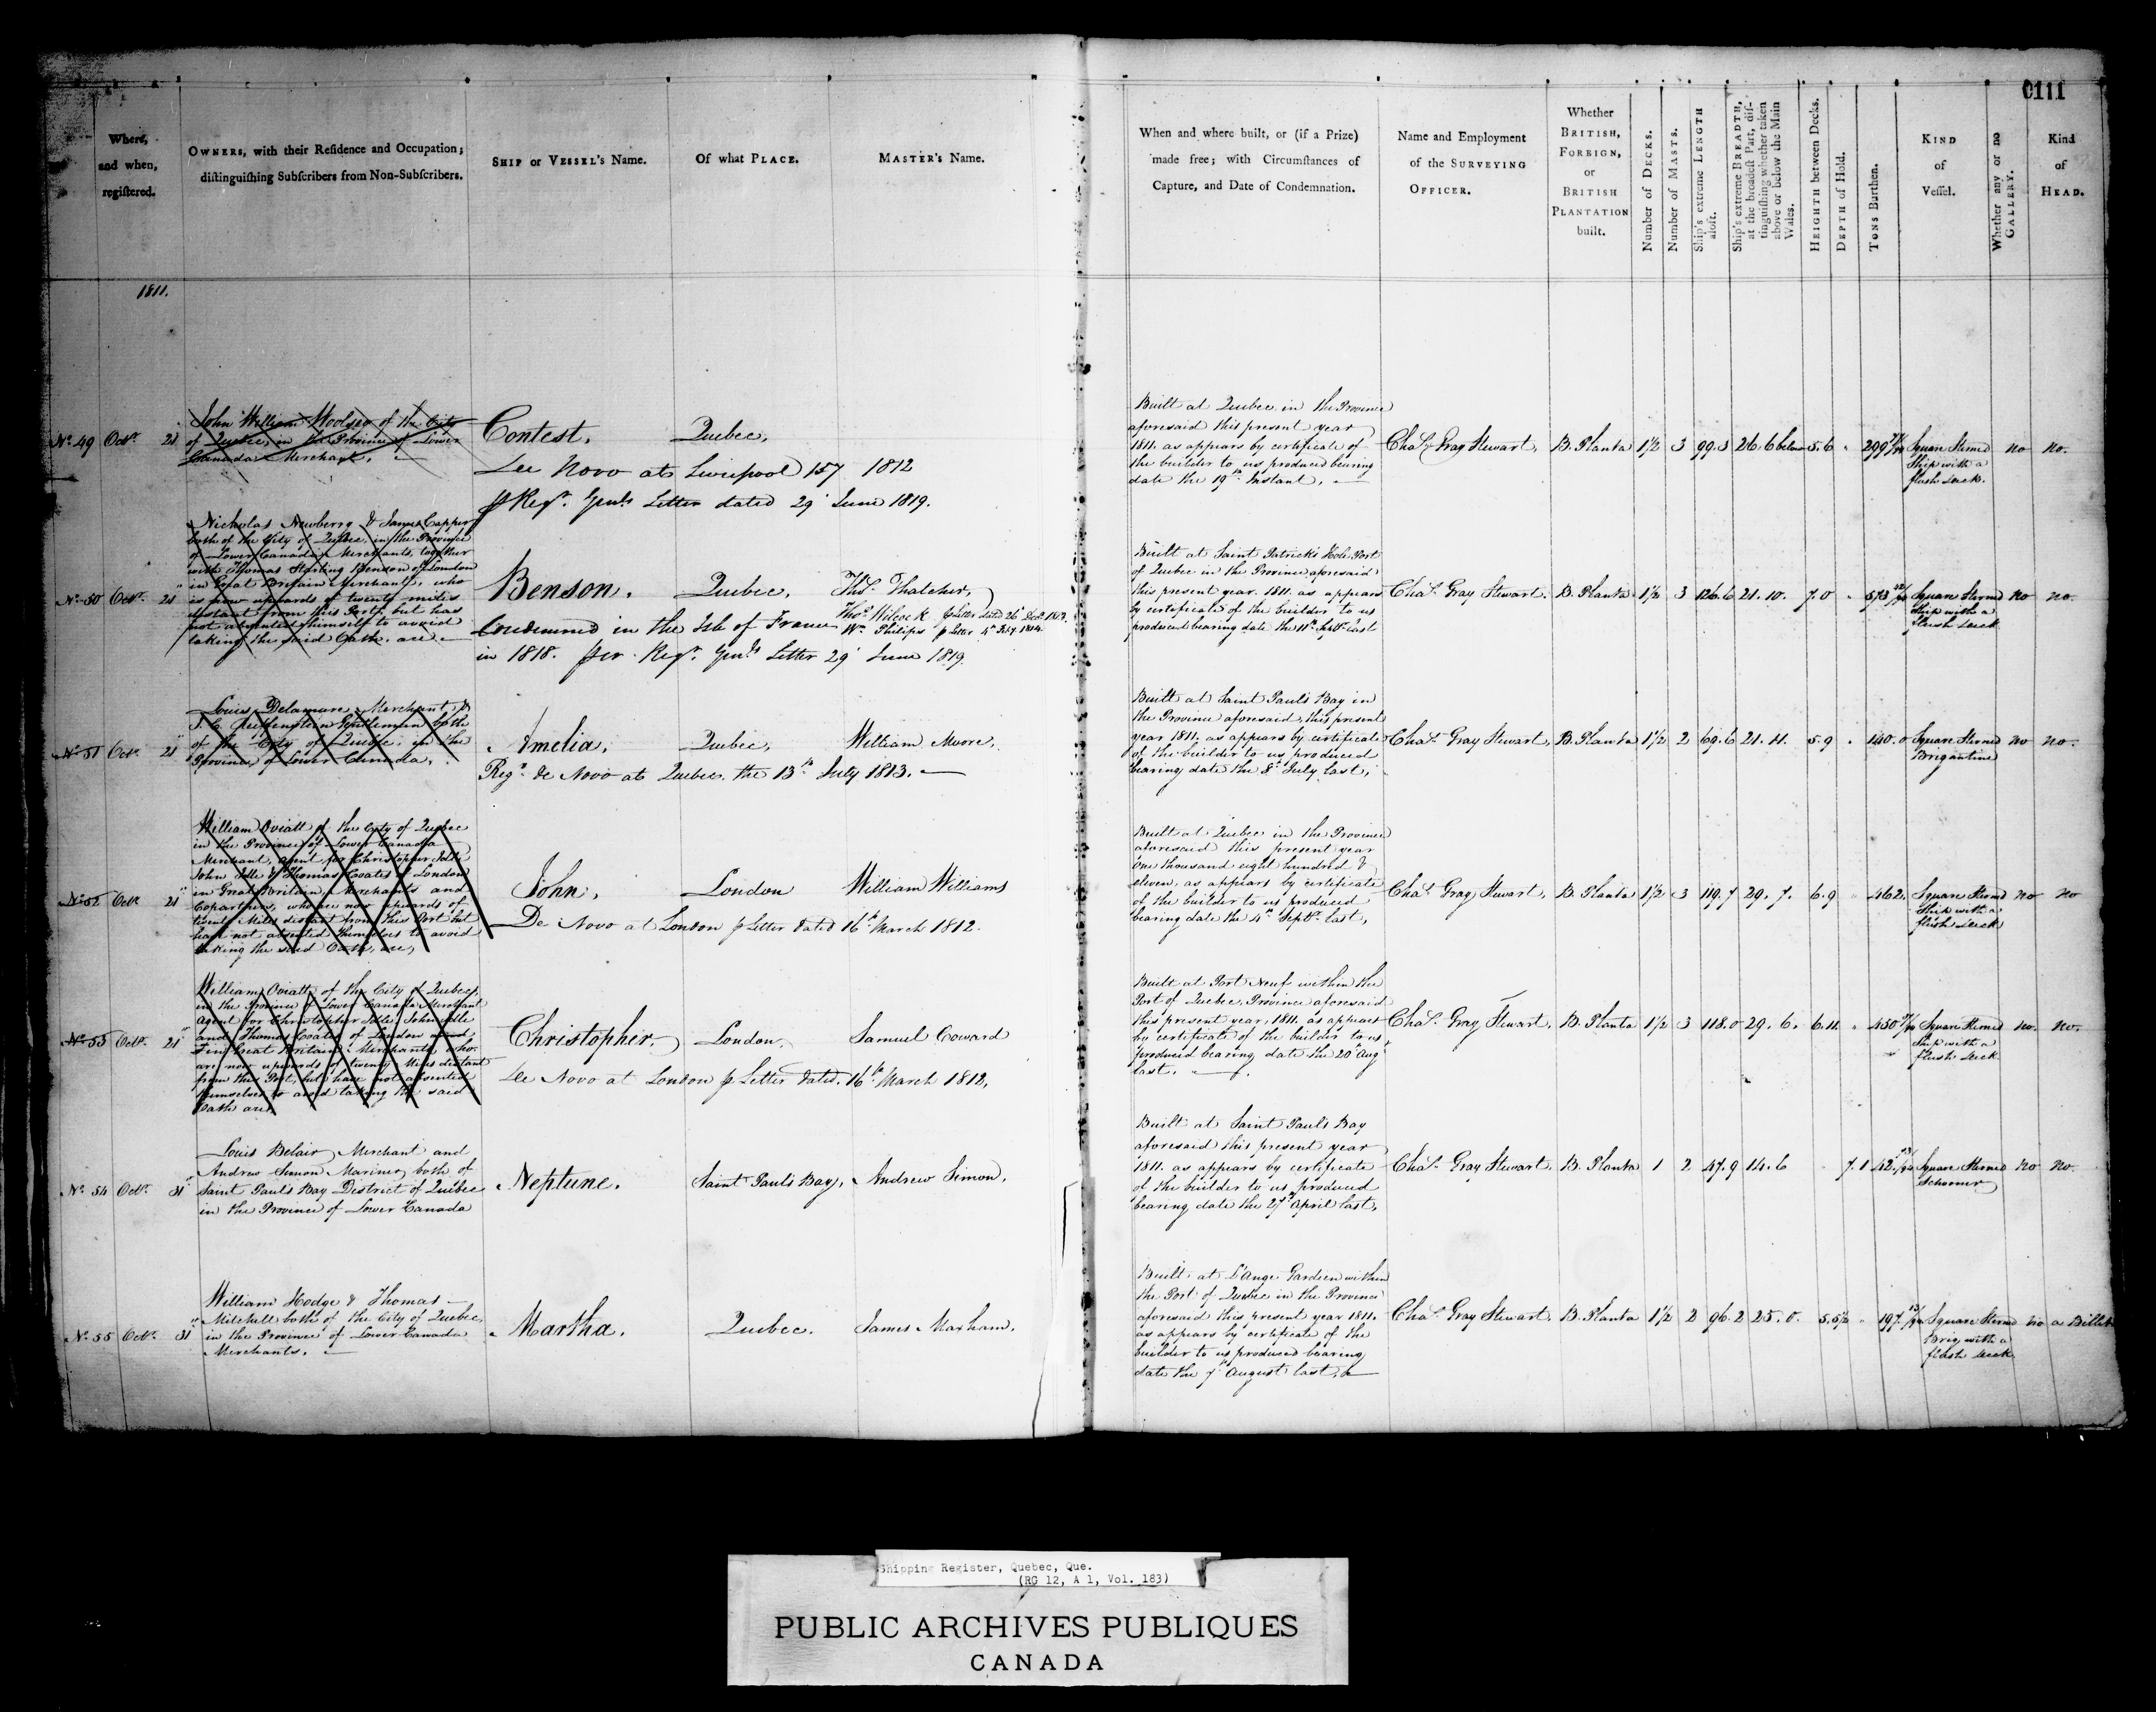 0111
Where,
and when,
registered.
OWNERS, with their Residence and Occupation;
distinguishing Subscribers from Non-Subscribers.
SHIP or VESSEL's Name.
Of what PLACE.
MASTER's Name.
When and where built, or (if a Prize)
made free; with Circumstances of
Capture, and Date of Condemnation.
Name and Employment
of the SURVEYING
OFFICER.
Whether
BRITISH,
FOREIGN,
or
BRITISH
PLANTATION
built.
Number of DECKS.
Number of MASTS.
Ship's extreme LENGTH
aloft.
Ship's extreme BREADTH,
at the broadest Part, dis-
tinguishing whether taken
above or below the Main
Wales.
HEIGHTH between Decks.
DEPTH of Hold.
TONS Burthen.
KIND
of
Vessel.
Whether any or no
GALLERY.
Kind
of
HEAD.
1811.
No. 49 Octr. 21
John William Woolsey of the City
of Quebec, in the Province of Lower
Canada Merchant.
Contest, Quebec,
De Novo at Liverpool 157 1812
p Regr. Genls Letter dated 29 June 1819.
Built at Quebec in the Province
aforesaid this present year
1811. as appears by certificate of
the builder to us produced bearing
date the 19th Instant.
Chas. Gray Stewart, B. Planta 1½ 3 99.3 26.6 below 5.6 " 299 Square Sterned
Ship with a
flush Deck.
no no.
No. 50 Octr. 21
Nicholas Newberry & James Capper
both of the City of Quebec, in the Province
of Lower Canada Merchants, together
with Thomas Starling Benson of London
in Great Britain Merchant, who
is now upwards of twenty miles
distant from this Port, but has
not absented himself to avoid
taking the said Oath. are
Benson. Quebec, Thos. Thatcher,
Thos. Wilcock p Letter dated 26 Decr. 1812.
Wm. Philips p Letter 4th Feby. 1814.
Condemned in the Isle of France
in 1818. per Regr. Genls Letter 29 June 1819.
Built at Saint Patricks Hole Port
of Quebec in the Province aforesaid
this present year. 1811. as appears
by certificate of the builder to us
produced bearing date the 11th Septr. last
Chas. Gray Stewart. B. Planta 1½ 3 126.6 21.10. 7.0 " 573 Square Sterned
Ship with a
flush Deck
no no.
No. 51 Octr. 21
Louis Delamare Merchant, &
of the City of Quebec, in the
Province of Lower Canada,
Amelia, Quebec, William Moore,
Regd. de Novo at Quebec the 13th July 1813.
Built at Saint Pauls Bay in
the Province aforesaid, this present
year 1811. as appears by certificate
of the builder to us produced
bearing date the 8th July last,
Chas. Gray Stewart, B. Planta 1½ 2 69.6 21.11. 5.9 " 140.0 Square Sterned
Brigantine
no no.
No. 52 Octr. 21
William Oviatt of the City of Quebec
in the Province of Lower Canada
Merchant, agent for Christopher Idle
John Idle & Thomas Coates of London
in Great Britain, Merchants and
Copartners, who are now upwards of
twenty Miles distant from this Port but
have not absented themselves to avoid
taking the said Oath, are,
John, London William Williams
De Novo at London p Letter dated 16th March 1812.
Built at Quebec in the Province
aforesaid this present year
one thousand eight hundred &
eleven, as appears by certificate
of the builder to us produced
bearing date the 4th Septr. last,
Chas. Gray Stewart, B. Planta 1½ 3 119.7 29. 7. 6.9 " 462. Square Sterned
Ship with a
flush Deck
no no
No. 53 Octr. 21
William Oviatt of the City of Quebec
in the Province of Lower Canada Merchant
Agent for Christopher Idle, John Idle
and Thomas Coates of London
in Great Britain Merchants who
are now upwards of twenty Miles distant
from this Port, but have not absented
themselves to avoid taking the said
Oath are
Christopher. London. Samuel Coward
De Novo at London p Letter dated. 16th March 1812.
Built at Port Neuf within the
Port of Quebec, Province aforesaid
this present year, 1811. as appears
by certificate of the builder to us
produced bearing date the 20th Augt
last.
Chas. Gray Stewart, B. Planta 1½ 3 118.0 29. 6. 6.11 " 450 Square Sterned
Ship with a
flush Deck
no. no.
No. 54 Octr. 31
Louis Belair, Merchant and
Andrew Simon Mariner, both of
Saint Pauls Bay District of Quebec
in the Province of Lower Canada
Neptune. Saint Pauls Bay, Andrew Simon,
Built at Saint Pauls Bay
aforesaid this present year
1811. as appears by certificate
of the builder to us produced
bearing date the 27th April last,
Chas. Gray Stewart, B. Planta 1 2 47.9 14.6 7.1 42. Square Sterned
Schooner
no no.
No. 55 Octr. 31
William Hodge & Thomas
Mitchell both of the City of Quebec,
in the Province of Lower Canada
Merchants.
Martha. Quebec. James Maxham.
Built at L'Ange Gardien within
the Port of Quebec in the Province
aforesaid this present year 1811.
as appears by certificate of the
builder to us produced bearing
date the 7th August last.
Chas. Gray Stewart, B. Planta 1½ 2 96.2 25.0. 5.5½ " 197. Square Sterned
Brig with a
flush Deck
no a Billet
Shipping Register, Quebec, Que.
(RG 12, A 1, Vol. 183)
PUBLIC ARCHIVES PUBLIQUES
CANADA